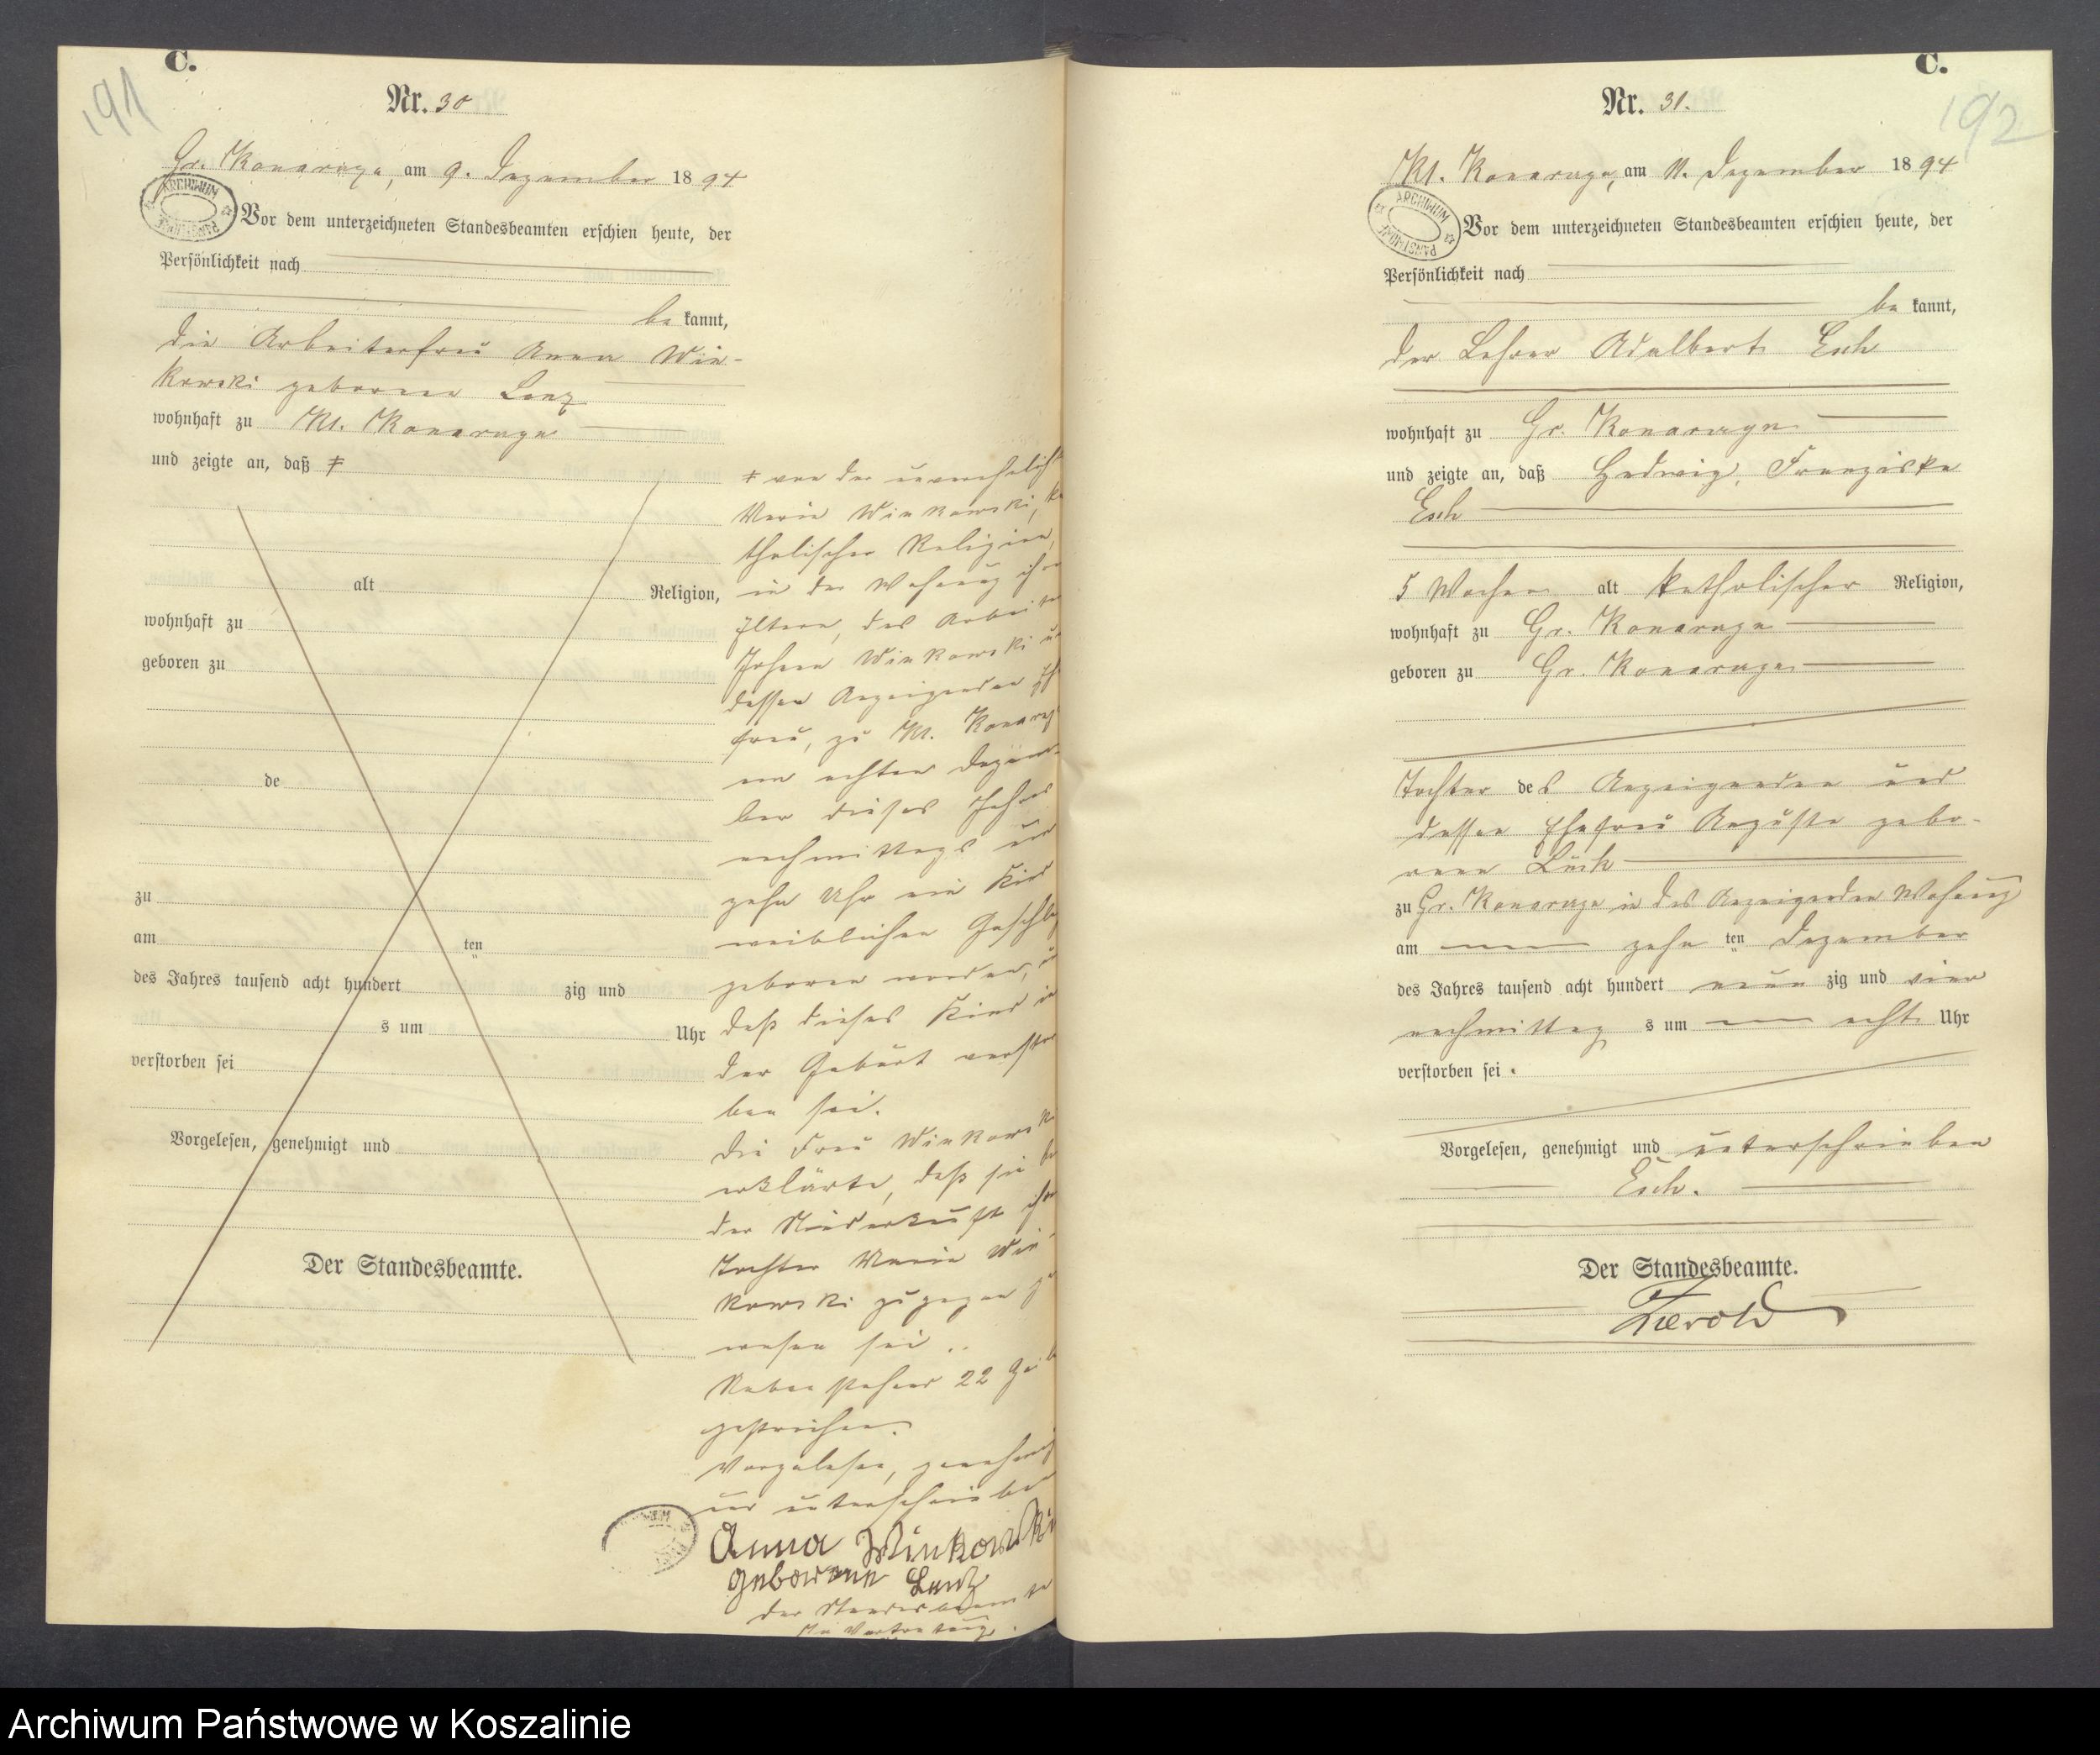 191
C.
Nr. 30
Gr. Konarczyn, am 9. Dezember 1894
ARCHIWUM
Vor dem unterzeichneten Standesbeamten erschien heute, der
Persönlichkeit nach
be kannt,
die Arbeiterfrau Anna Win-
kowski geborene Lenz
wohnhaft zu Kl. Konarczyn
und zeigte an, daß ≠
alt Religion,
wohnhaft zu
geboren zu
de
zu
am ten
des Jahres tausend acht hundert zig und
s um Uhr
verstorben sei
Vorgelesen, genehmigt und
Der Standesbeamte.
≠ von der unverehelicht
Maria Winkowski, ka
tholischer Religion,
in der Wohnung ihrer
Eltern, des Arbeiter
Johann Winkowski u
dessen Anzeigenden Eh
frau, zu Kl. Konarcz
am achten Dezem-
ber dieses Jahres
nachmittags um
zehn Uhr ein Kind
weiblichen Geschle
geboren worden, u
daß dieses Kind in
der Geburt verstor
ben sei.
Die Frau Winkowski
erklärte, daß sie bei
der Niederkunft ihrer
Tochter Maria Win-
kowski zugegen ge
wesen sei.
Nebenstehend 22
gestrichen.
Vorgelesen, genehmigt
und unterschrieben
Anna Winkowski
geborene Lenz
Der Standesbeamte
In Vertretung.
C.
192
Nr. 31.
Kl. Konarczyn, am 11. Dezember 1894
ARCHIWUM
PAŃSTWOWE
Vor dem unterzeichneten Standesbeamten erschien heute, der
Persönlichkeit nach
be kannt,
der Lehrer Adalbert Esch
wohnhaft zu Gr. Konarczyn
und zeigte an, daß Hedwig, Franziska
Esch
5 Wochen alt katholischer Religion,
wohnhaft zu Gr. Konarczyn
geboren zu Gr. Konarczyn
Tochter des Anzeigenden und
dessen Ehefrau Auguste gebo-
rene Lück
zu Gr. Konarczyn in des Anzeigenden Wohnung
am zehn ten Dezember
des Jahres tausend acht hundert neun zig und vier
nachmittag s um acht Uhr
verstorben sei.
Vorgelesen, genehmigt und unterschrieben
Esch.
Der Standesbeamte.
Archiwum Państwowe w Koszalinie